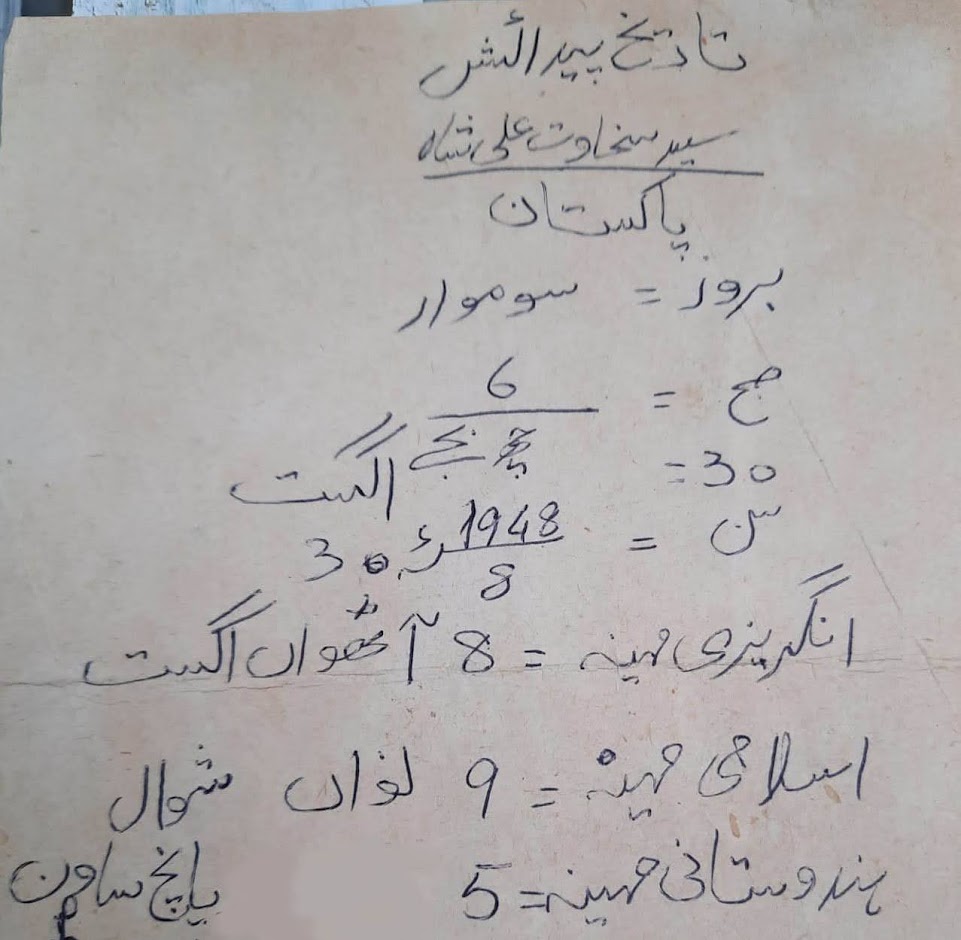 تاریخ پیدائش
سید سخاوت علی شاہ
پاکستان
بروز = سوموار
صبح = 6
چھ بجے
30 = اگست
سن = 1948ء 30
8
انگریزی مہینہ = 8 آٹھواں اگست
اسلامی مہینہ = 9 نواں شوال
ہندوستانی مہینہ = 5 پانچ ساون